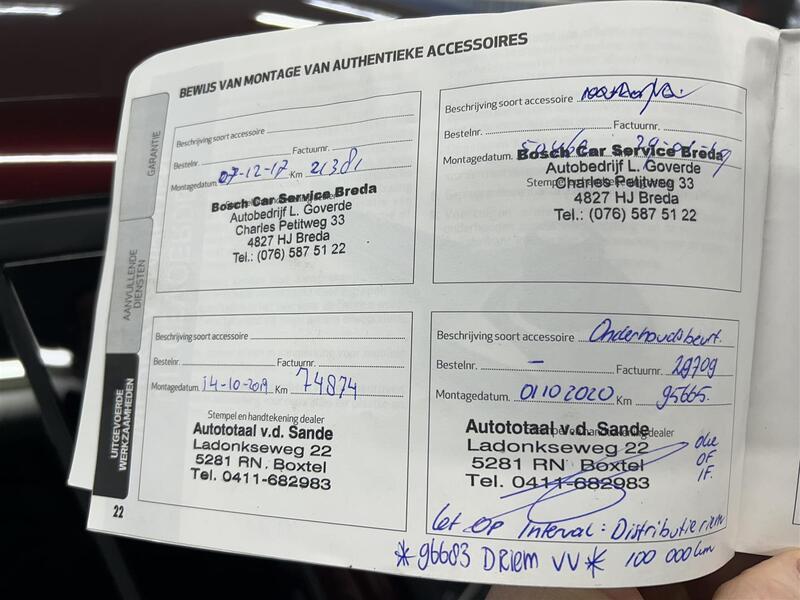 BEWIJS VAN MONTAGE VAN AUTHENTIEKE ACCESSOIRES
GARANTIE
AANVULLENDE
DIENSTEN
UITGEVOERDE
WERKZAAMHEDEN
Beschrijving soort accessoire
Bestelnr. Factuurnr.
Montagedatum. 07-12-17 Km 21381
Bosch Car Service Breda
Autobedrijf L. Goverde
Charles Petitweg 33
4827 HJ Breda
Tel.: (076) 587 51 22
Beschrijving soort accessoire
Bestelnr. Factuurnr.
Montagedatum.
Bosch Car Service Breda
Autobedrijf L. Goverde
Charles Petitweg 33
4827 HJ Breda
Tel.: (076) 587 51 22
Beschrijving soort accessoire
Bestelnr. Factuurnr.
Montagedatum. 14-10-2019 Km 74874
Stempel en handtekening dealer
Autototaal v.d. Sande
Ladonkseweg 22
5281 RN Boxtel
Tel. 0411-682983
Beschrijving soort accessoire Onderhoudsbeurt.
Bestelnr. – Factuurnr. 29709
Montagedatum. 01 10 2020 Km 95665.
Autototaal v.d. Sande dealer
Ladonkseweg 22 olie
5281 RN Boxtel OF
Tel. 0411-682983 IF.
let op Interval: Distributieriem
*96683 DRiem VV* 100 000km
22